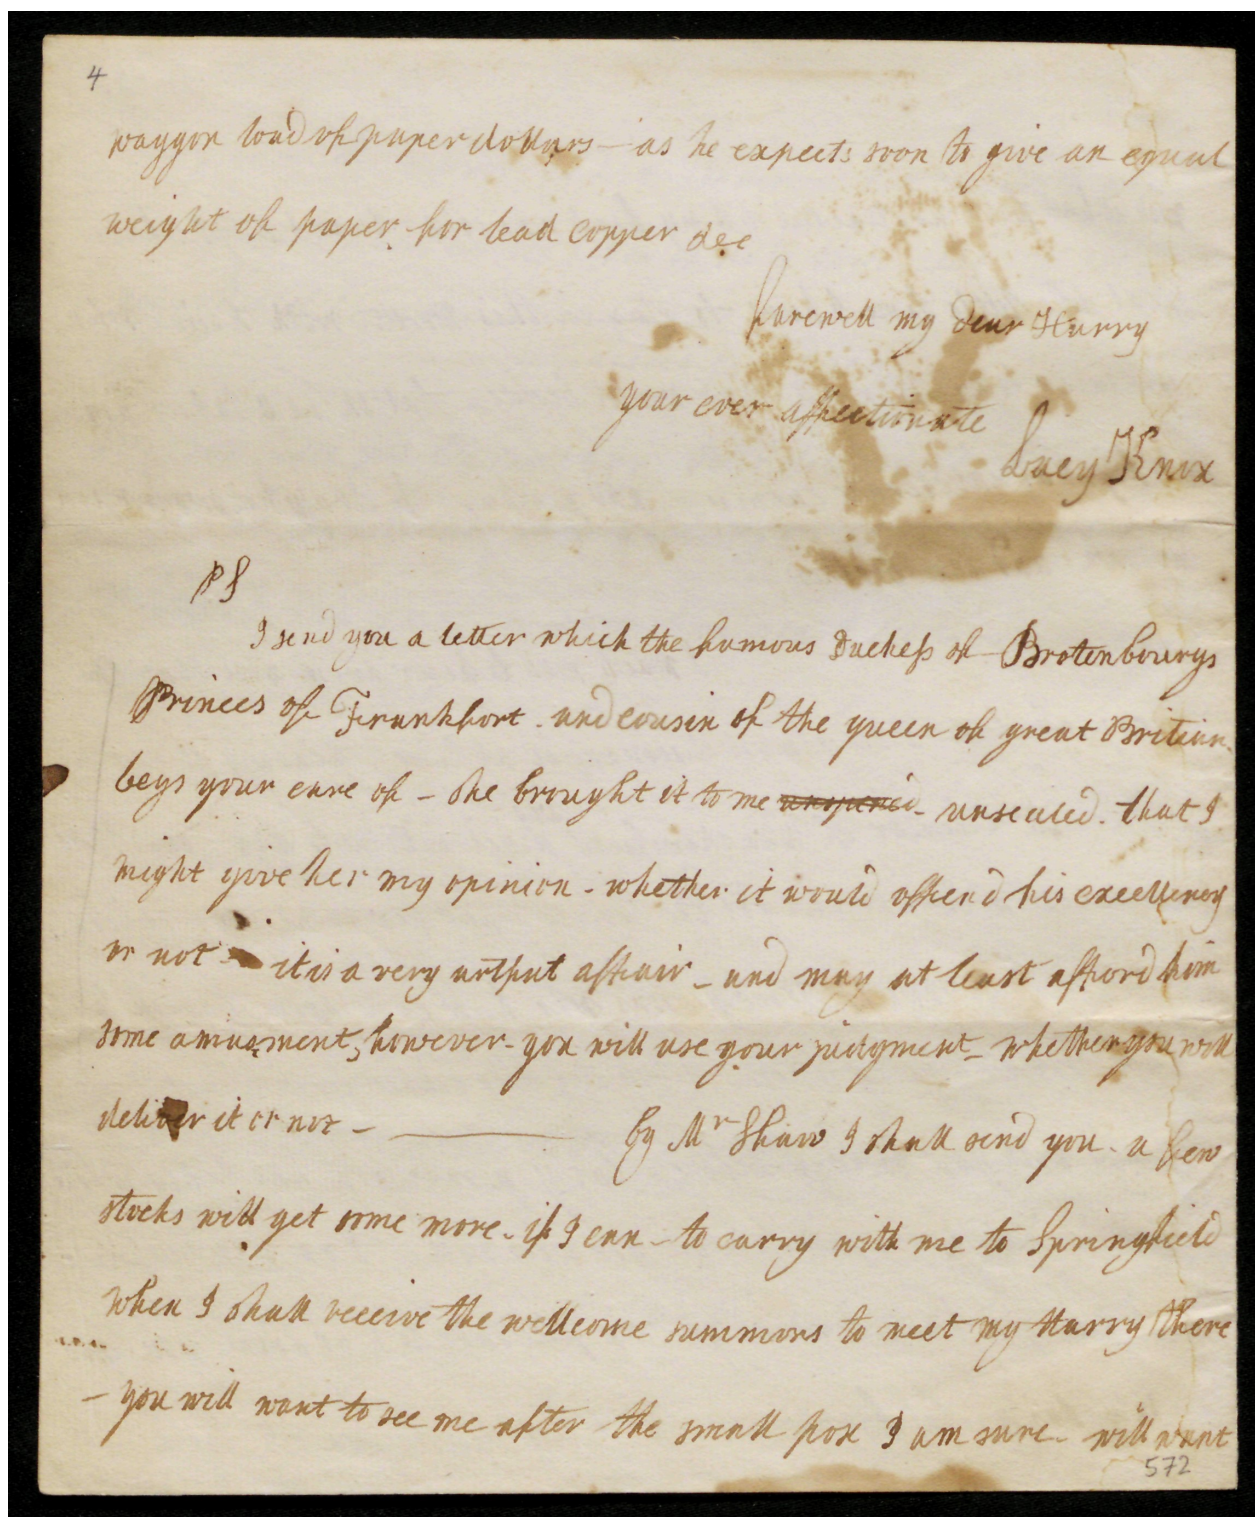 4
waggon load of paper dollars – as he expects soon to give an equal
weight of paper for lead copper &ec
farewell my dear Harry
your ever affectionate
Lucy Knox
PS
I send you a letter which the famous Duchess of Brotenbourgs
Princes of Frankfort. and cousin of the queen of great Britian
begs your care of – she brought it to me unopened – unsealed. that I
might give her my opinion – whether it would offend his excellency
or not – it is a very artfut affair – and may at least afford him
some amusment, however – you will use your judgment – whether you will
deliver it or not – by Mr Shaw I shall send you – a few
stocks will get some more – if I can – to carry with me to Springfield
when I shall receive the wellcome summons to meet my Harry there
– you will want to see me after the small pox I am sure – will want
572